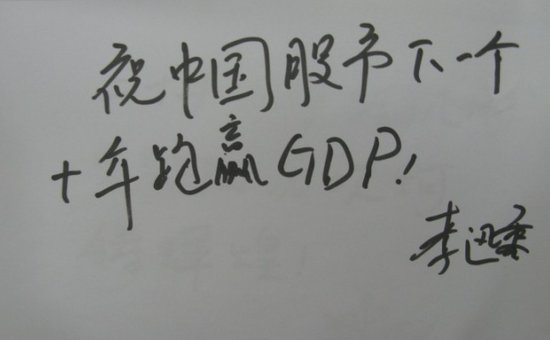 祝中国股市下一个
十年跑赢GDP!
李迅雷